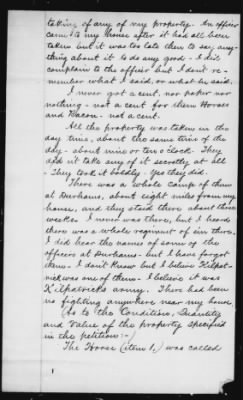 taking of any of my property. An officer
came to my house after it had all been
taken but it was too late then to say any-
thing about it to do any good - I did
complain to the officer but I don't re-
member what I said, or what he said.
I never got a cent, nor paper nor
nothing - not a cent for them Horses
and Bacon - not a cent.
All the property was taken in the
day time, about the same time of the
day - about nine or ten o'clock. They
did n't take any of it secretly at all
- They took it boldly - Yes they did.
There was a whole camp of them
at Durhams, about eight miles from my
house, and they staid there about three
weeks. I never was there, but I heard
there was a whole regiment of 'em there.
I did hear the names of some of the
officers at Durhams - but I have forgot
them - I don't know but I believe Kilpat-
rick was one of them - I believe it was
Kilpatricks army. There had been
no fighting anywhere near my house
(As to the Condition, Quantity
and Value of the property specified
in the petition: - )
The Horse (item 1.) was called
1